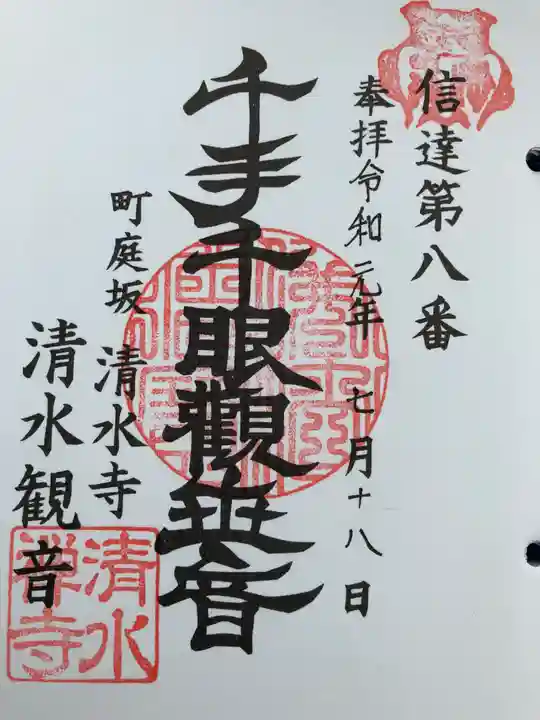 信達第八番
奉拝令和元年七月十八日
千手千眼觀世音
町庭坂 清水寺
清水観音
清水
禅寺